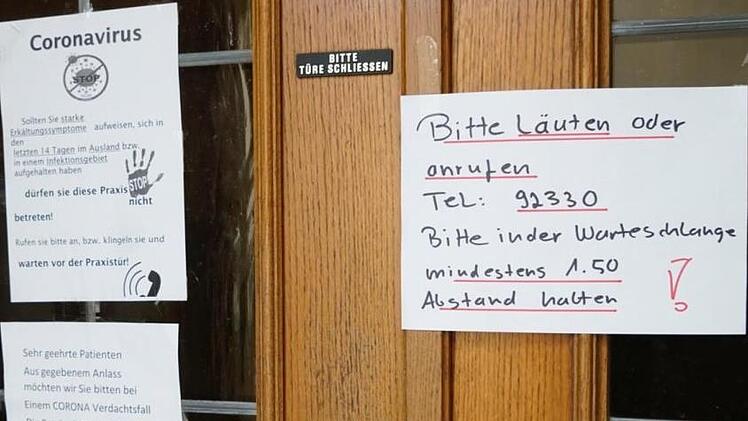 Coronavirus
STOP
Sollten Sie starke
Erkältungssymptome aufweisen, sich in
den
letzten 14 Tagen im Ausland bzw.
in einem Infektionsgebiet
aufgehalten haben
STOP
dürfen sie diese Praxis nicht
betreten!
Rufen sie bitte an, bzw. klingeln sie und
warten vor der Praxistür!
Sehr geehrte Patienten
Aus gegebenem Anlass
möchten wir Sie bitten bei
Einem CORONA Verdachtsfall
BITTE
TÜRE SCHLIESSEN
Bitte Läuten oder
anrufen
Tel: 92330
Bitte in der Warteschlange
mindestens 1.50
Abstand halten !